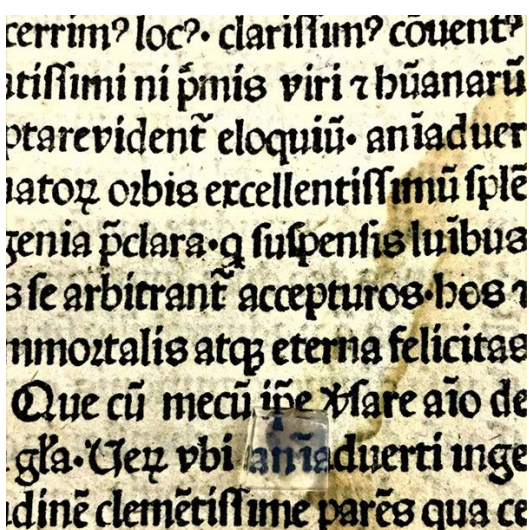 cerrimꝰ locꝰ. clariſſimꝰ cōuentꝰ
atiſſimi ni p̄mis viri ⁊ hūanarū
ptare vident̄ eloquiū. anīaduer
natoꝝ orbis excellentiſſimū ſplē
genia p̄clara. q ſuſpenſis luībus
s ſe arbitrant̄ accepturos. hos ⁊
mmortalis atqꝫ eterna felicitas
Que cū mecū ip̄e v̄ſare aīo de
gl̄a. Ueꝝ vbi anīaduerti inge
dinē clemētiſſime parēs qua co